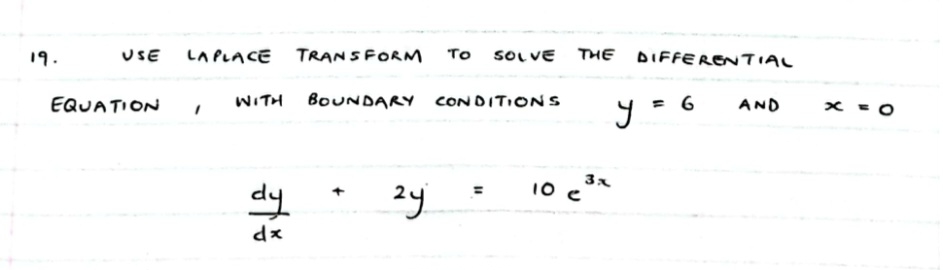 19. USE LAPLACE TRANSFORM TO SOLVE THE DIFFERENTIAL
EQUATION , WITH BOUNDARY CONDITIONS y = 6 AND x = 0
dy/dx + 2y = 10 e^3x